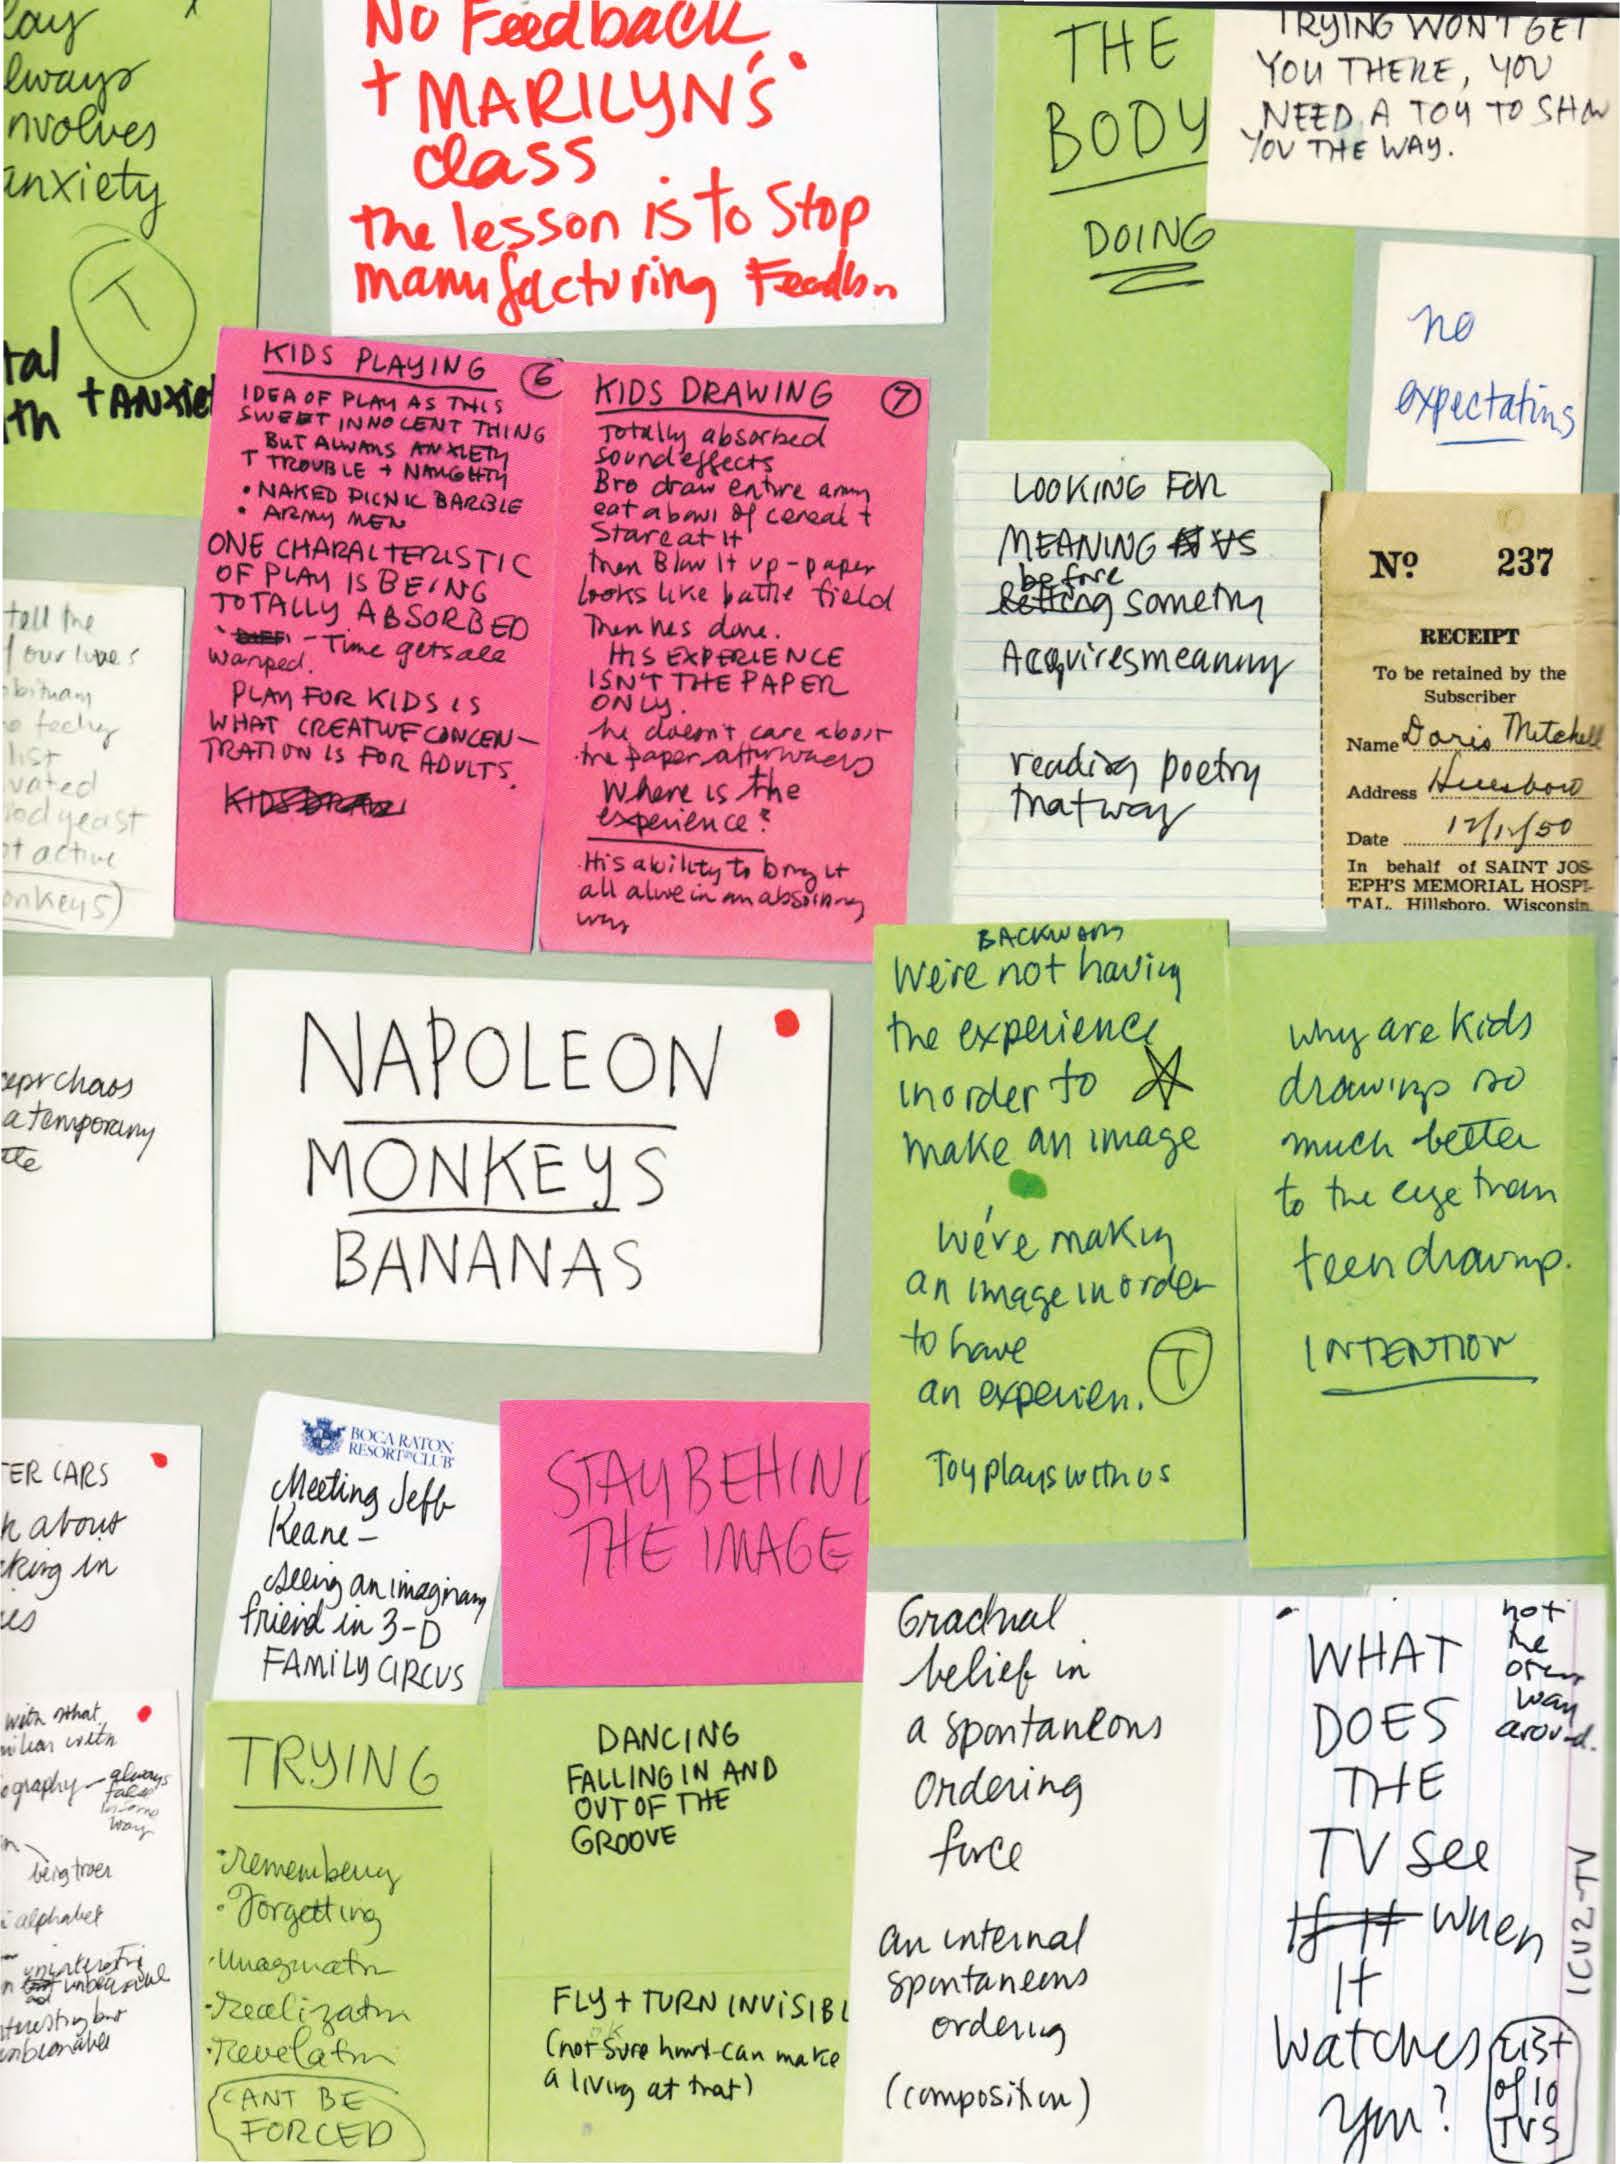 lay
lways
nvolves
anxiety
T
tal
th + ANXIE
No Feedback
+ MARILYN'S
class
the lesson is to Stop
manufacturing
THE
BODY
DOING
TRYING WON'T GET
YOU THERE, YOU
NEED A TOY TO SHOW
YOU THE WAY.
no
expectatins
KIDS PLAYING 6
IDEA OF PLAY AS THIS
SWEET INNOCENT THING
BUT ALWAYS ANXIETY
T TROUBLE + NAUGHTY
• NAKED PICNIC BARBIE
• ARMY MEN
ONE CHARACTERISTIC
OF PLAY IS BEING
TOTALLY ABSORBED
- Time gets all
warped.
PLAY FOR KIDS IS
WHAT CREATIVE CONCEN-
TRATION IS FOR ADULTS.
KIDS DRAW
KIDS DRAWING 7
Totally absorbed
sound effects
Bro draw entire army
eat a bowl of cereal +
Stare at it
then Blow it up - paper
looks like battle field
Then hes done.
HIS EXPERIENCE
ISN'T THE PAPER
ONLY.
he doesn't care about
the paper afterwards
Where is the
experience?
His ability to bring it
all alive in an absorbing
way
LOOKING FOR
MEANING VS
before
something
Acquires meaning
reading poetry
that way
No 237
RECEIPT
To be retained by the
Subscriber
Name Doris Mitchell
Address Hillsboro
Date 12/12/50
In behalf of SAINT JOS-
EPH'S MEMORIAL HOSPI-
TAL, Hillsboro, Wisconsin
tell the
our loves
obituary
feeling
list
vated
od yeast
ot active
onkeys)
chaos
a temporary
NAPOLEON
MONKEYS
BANANAS
BACKWARDS
We're not having
the experience
in order to
make an image
we're making
an image in order
to have
an experien.
T
Toy plays with us
why are kids
drawings so
much better
to the eye than
teen drawings.
INTENTION
TER CARS
k about
king in
es
BOCA RATON
RESORT & CLUB
Meeting Jeff
Keane -
seeing an imaginary
friend in 3-D
FAMILY CIRCUS
STAY BEHIND
THE IMAGE
with what
miliar with
ography - always
false
in some
way
being true
alphabet
unbearable
teresting but
unbearable
TRYING
• remembering
• Forgetting
• Imaginatn
• Realizatn
• Revelatn
CANT BE
FORCED
DANCING
FALLING IN AND
OUT OF THE
GROOVE
FLY + TURN INVISIBL
(not sure how I can make
a living at that)
Gradual
belief in
a spontaneous
ordering
force
an internal
spontaneous
ordering
(composition)
WHAT
DOES
THE
TV see
If it when
It
watches
you?
not
the
other
way
around.
ICU2-TV
List
of 10
TVS